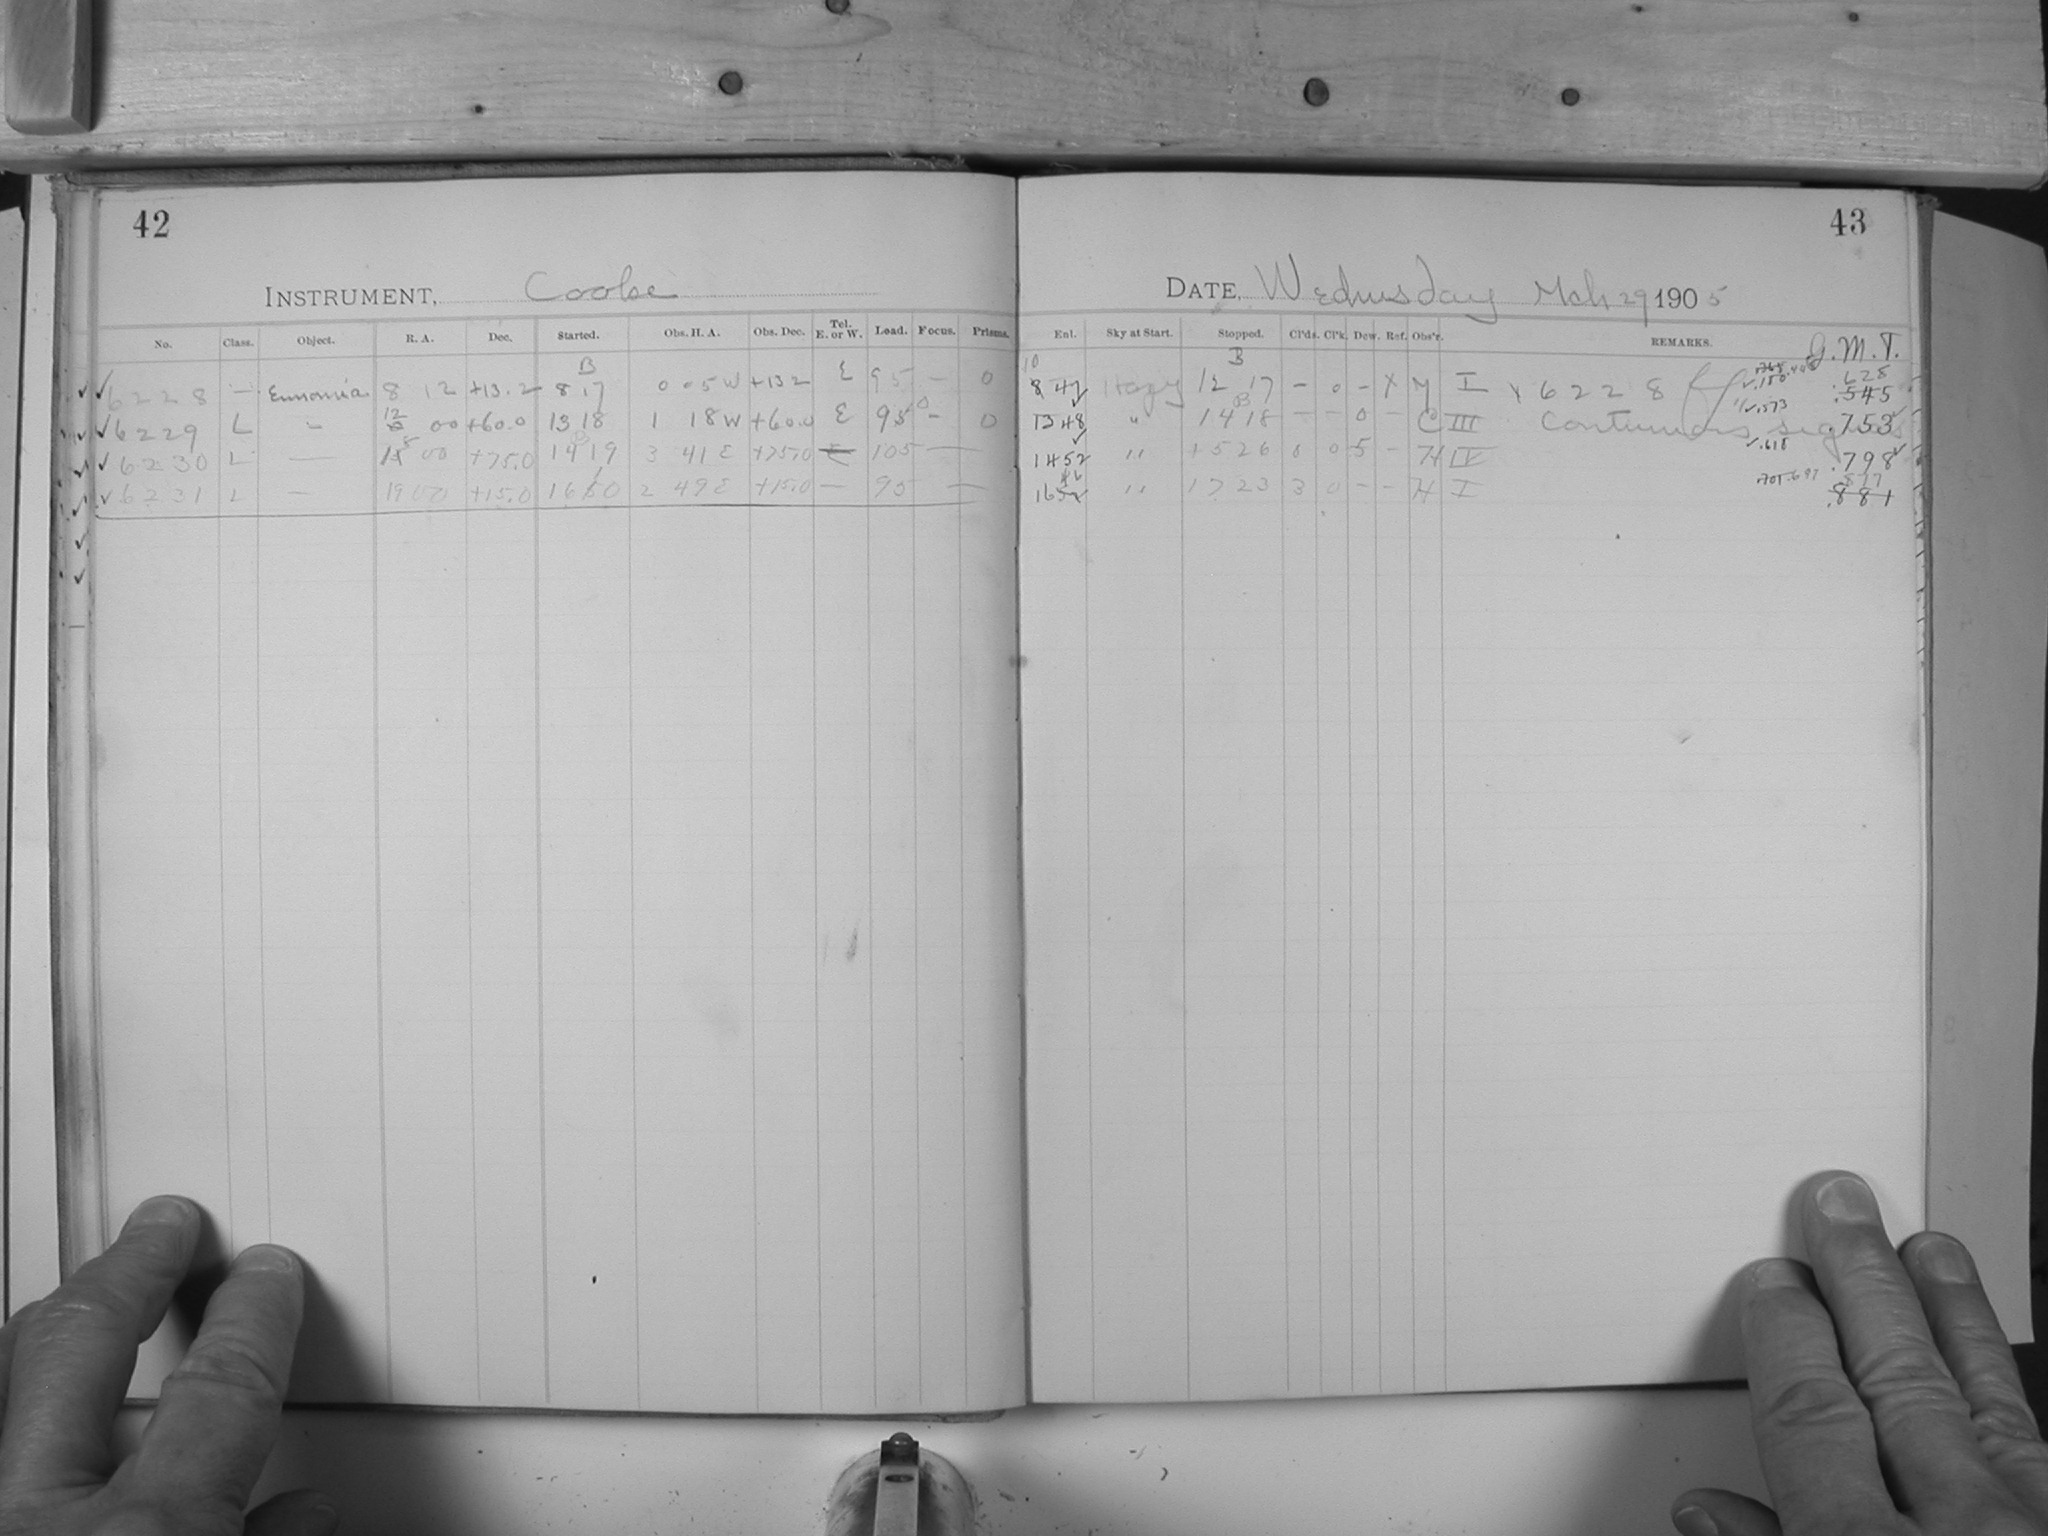 42
INSTRUMENT, Cooke
No. Class. Object. R. A. Dec. Started. Obs. H. A. Obs. Dec. Tel. E. or W. Load. Focus. Prisms.
B
6228 — Eunomia 8 12 +13.2 8 17 0 05 W +13 2 E 95 — 0
6229 L — 12 00 +60.0 13 18 1 18 W +60.0 E 95 — 0
6230 L — 18 00 +75.0 14 19 3 41 E +75.0 E 105 —
6231 L — 19 00 +15.0 16 2 49 E +15.0 — 95 —
43
DATE, Wednesday Mch 29 1905
Enl. Sky at Start. Stopped. Cl'ds. Cl'k. Dew. Ref. Obs'r. REMARKS. G.M.T.
10 B
8 47 Hazy 12 17 — 0 — X M I x 6228 .150 .628 .545
13 48 " 14 18 — — 0 — C III Continuous .573 .753
14 52 " 15 26 0 0 5 — H IV .618 .798
16 " 17 23 3 0 — — H I .697 .877 .881